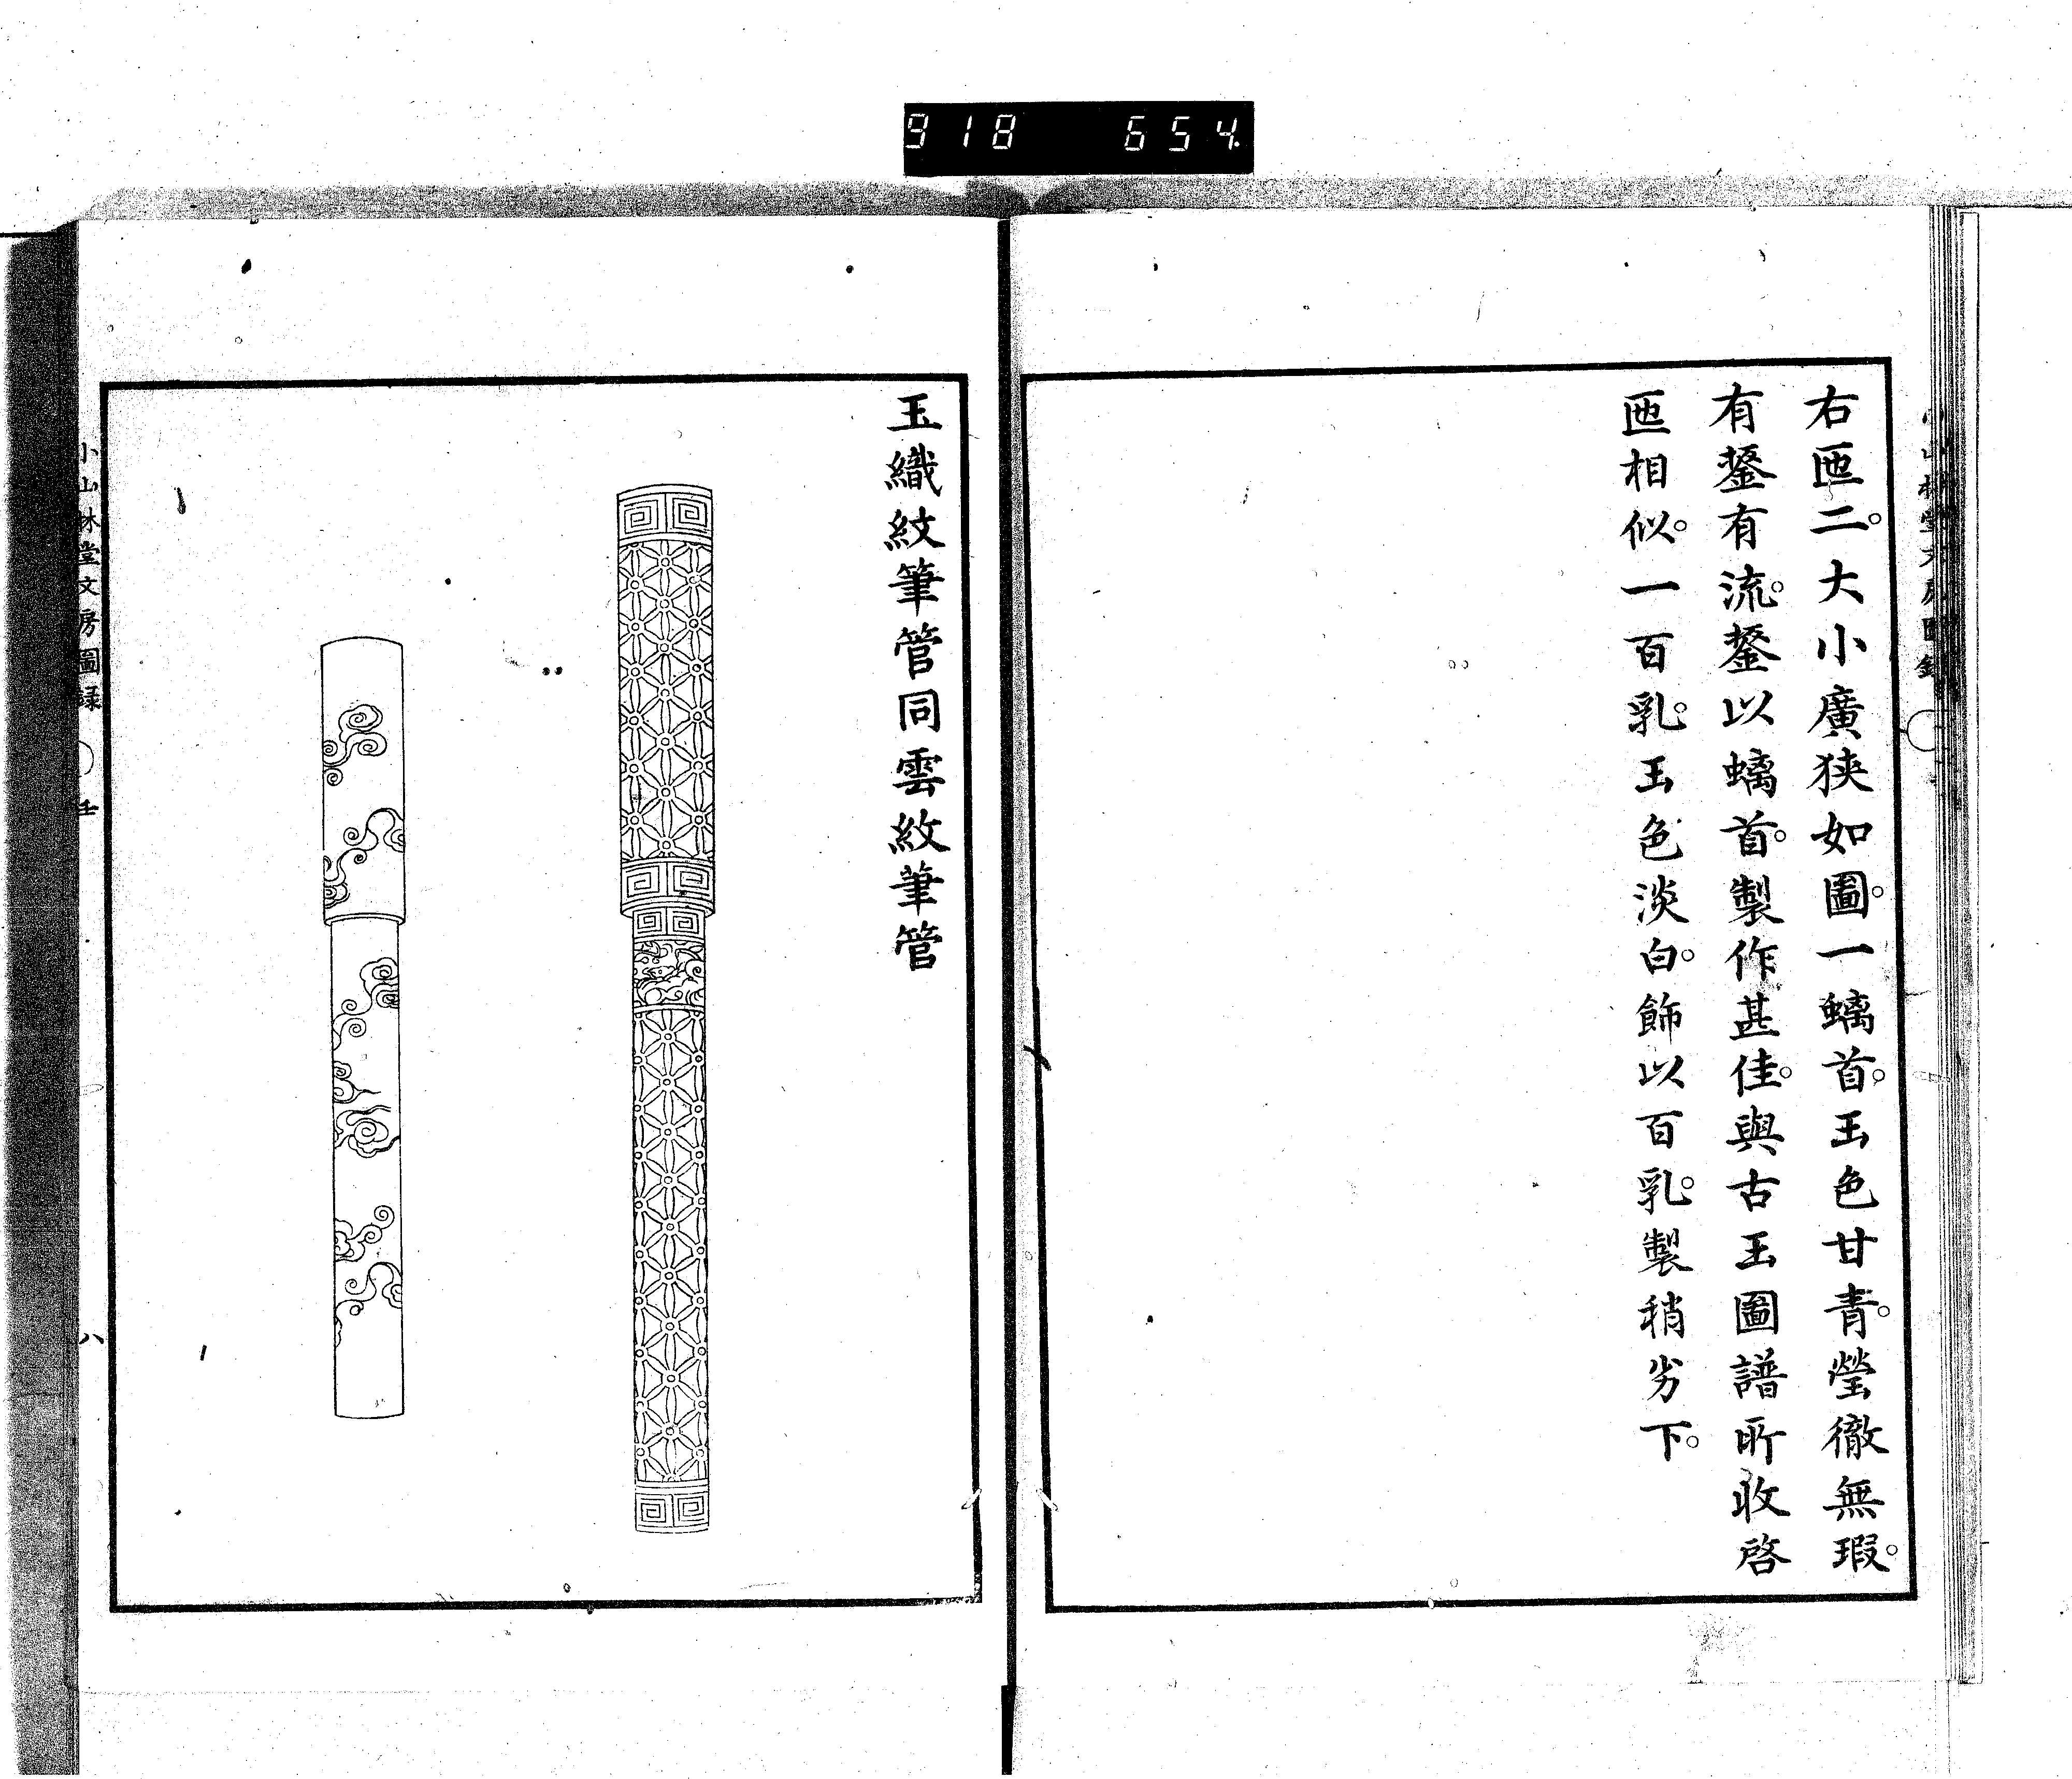 918 654.
右匜二。大小廣狹如圖。一螭首。玉色甘青。瑩徹無瑕。
有鋬有流。鋬以螭首。製作甚佳。與古玉圖譜所收啓
匜相似。一百乳。玉色淡白。飾以百乳。製稍劣下。
玉織紋筆管同雲紋筆管
小山林堂文房圖録 壬 八